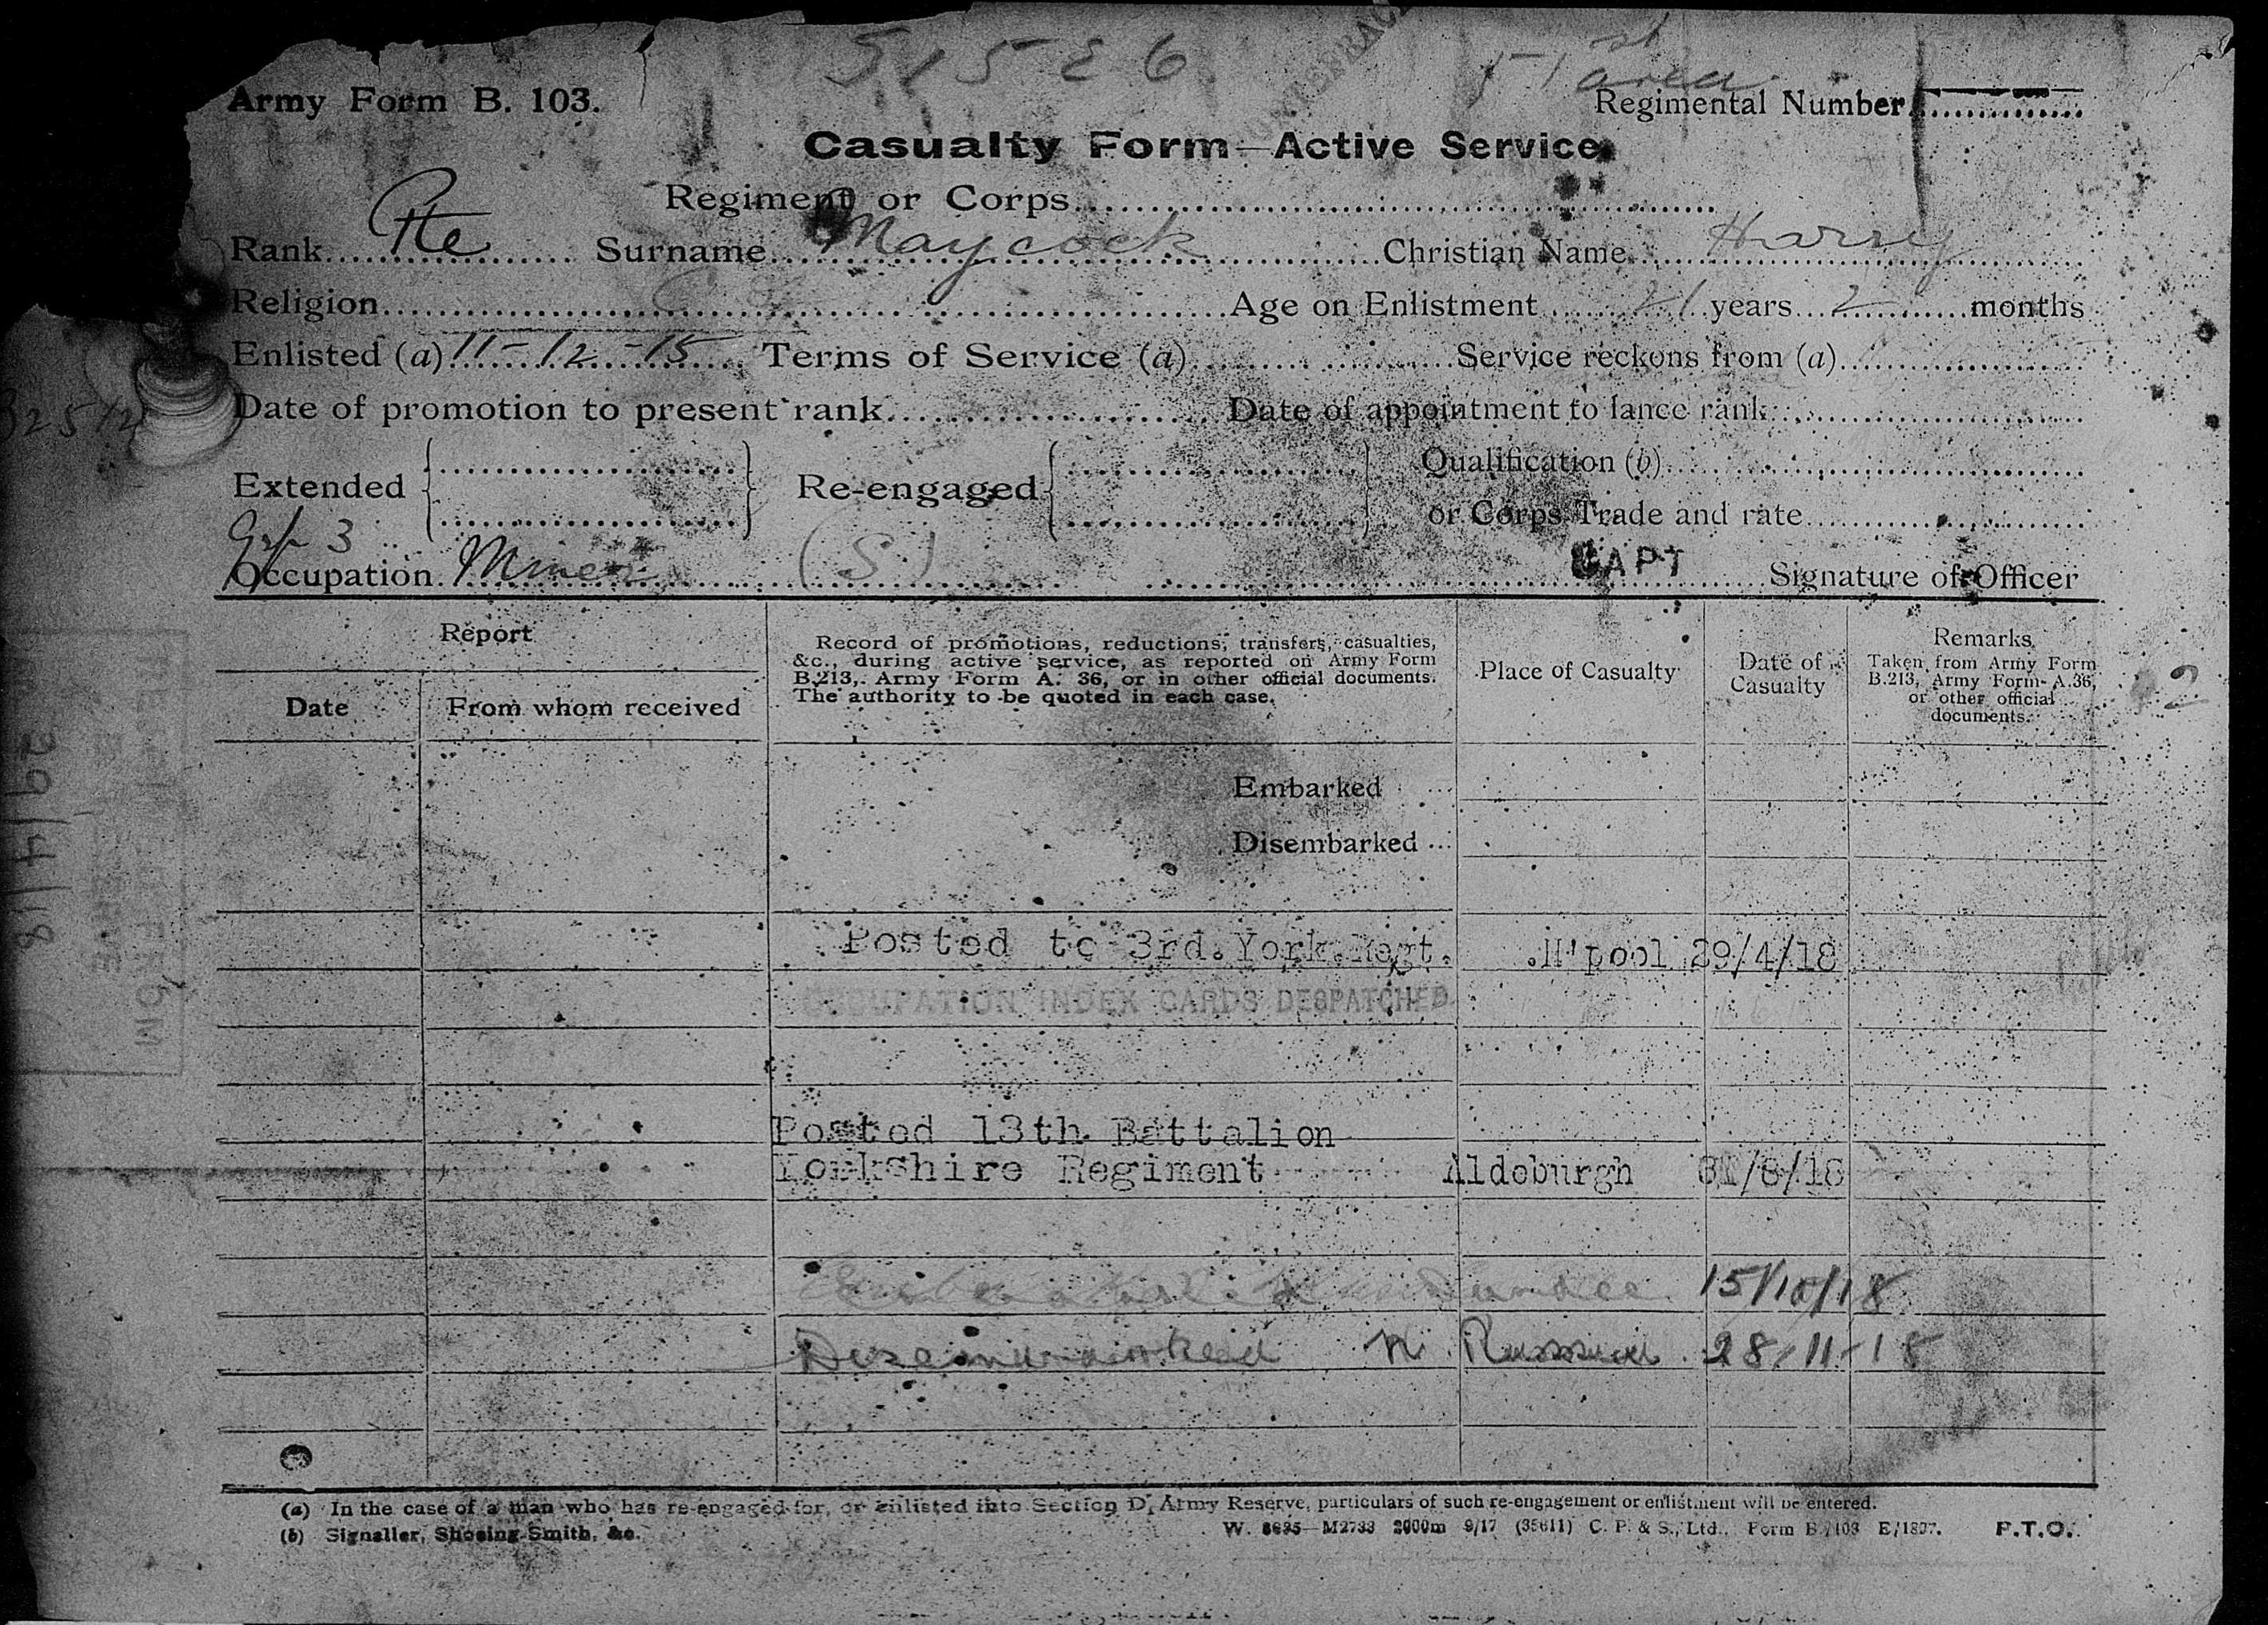 51526
Army Form B. 103.
Regimental Number
Casualty Form—Active Service.
Regiment or Corps
Rank Pte Surname Maycock Christian Name Harry
Religion Age on Enlistment 21 years 2 months
Enlisted (a) 11-12-15 Terms of Service (a) Service reckons from (a)
Date of promotion to present rank Date of appointment to lance rank
Extended Re-engaged Qualification (b)
or Corps Trade and rate
Grp 3
Occupation Miner (S) CAPT Signature of Officer
Report
Date
From whom received
Record of promotions, reductions, transfers, casualties,
&c., during active service, as reported on Army Form
B.213, Army Form A. 36, or in other official documents.
The authority to be quoted in each case.
Place of Casualty
Date of
Casualty
Remarks
Taken from Army Form
B.213, Army Form A.36,
or other official
documents.
Embarked
Disembarked
Posted to 3rd.York.Regt. H'pool 29/4/18
OCCUPATION INDEX CARDS DESPATCHED
Posted 13th Battalion
Yorkshire Regiment Aldeburgh 31/8/18
Embarked Dundee 15/10/18
Disembarked N. Russia 28-11-18
(a) In the case of a man who has re-engaged for, or enlisted into Section D, Army Reserve, particulars of such re-engagement or enlistment will be entered.
(b) Signaller, Shoeing-Smith, &c.
M2733 2000m 9/17 (35611) C. P. & S., Ltd. Form B./103 E/1807. P.T.O.
29/4/18